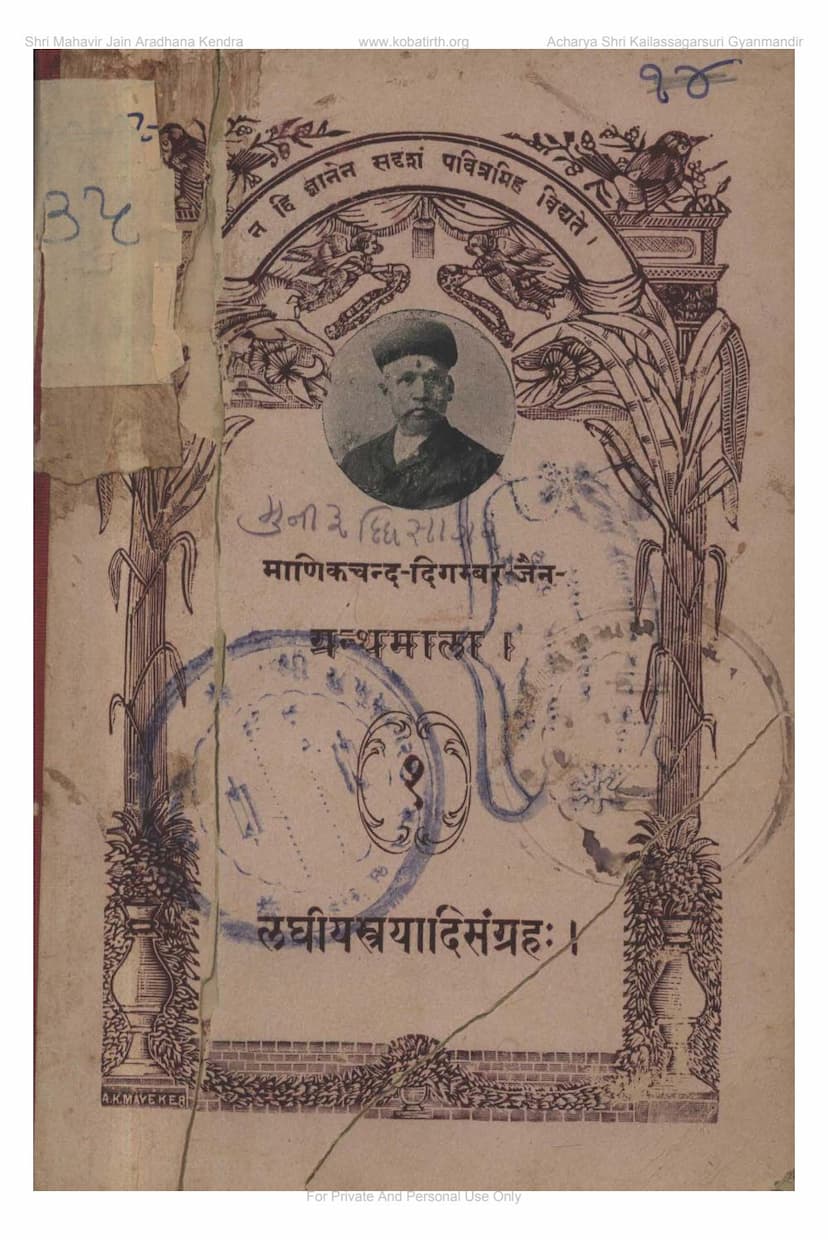 Shri Mahavir Jain Aradhana Kendra
www.kobatirth.org
Acharya Shri Kailassagarsuri Gyanmandir
१४
३५
न हि ज्ञानेन सदृशं पवित्रमिह विद्यते।
माणिकचन्द-दिगम्बर-जैन-
ग्रन्थमाला।
१
लघीयस्त्रयादिसंग्रहः।
A.K.MAVEKER
For Private And Personal Use Only